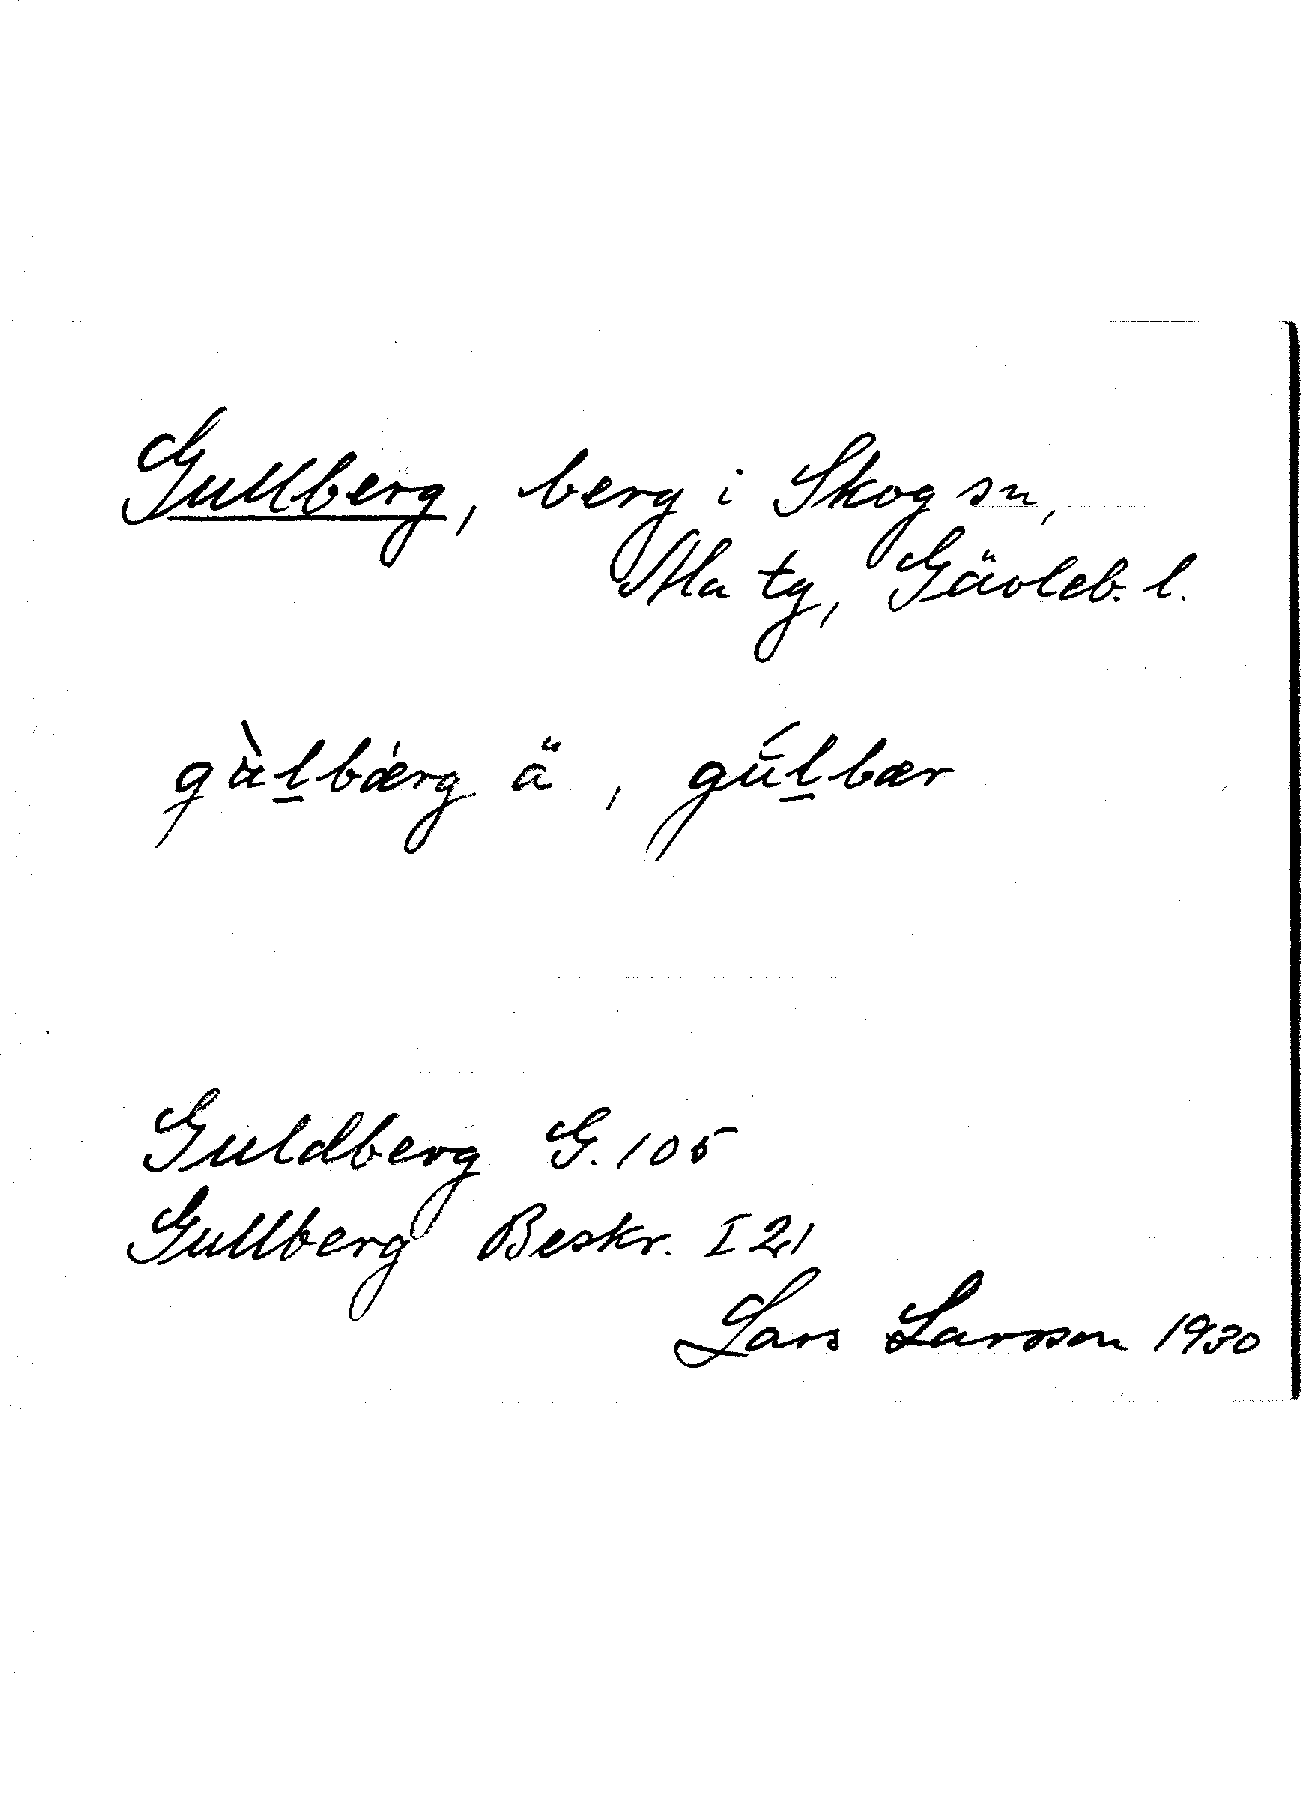 Gullberg, berg i Skog sn,
Ala tg, Gävleb. l.
gùlbǽrg ä, gúlbær
Guldberg G. 105
Gullberg Beskr. I 21
Lars Larsson 1930